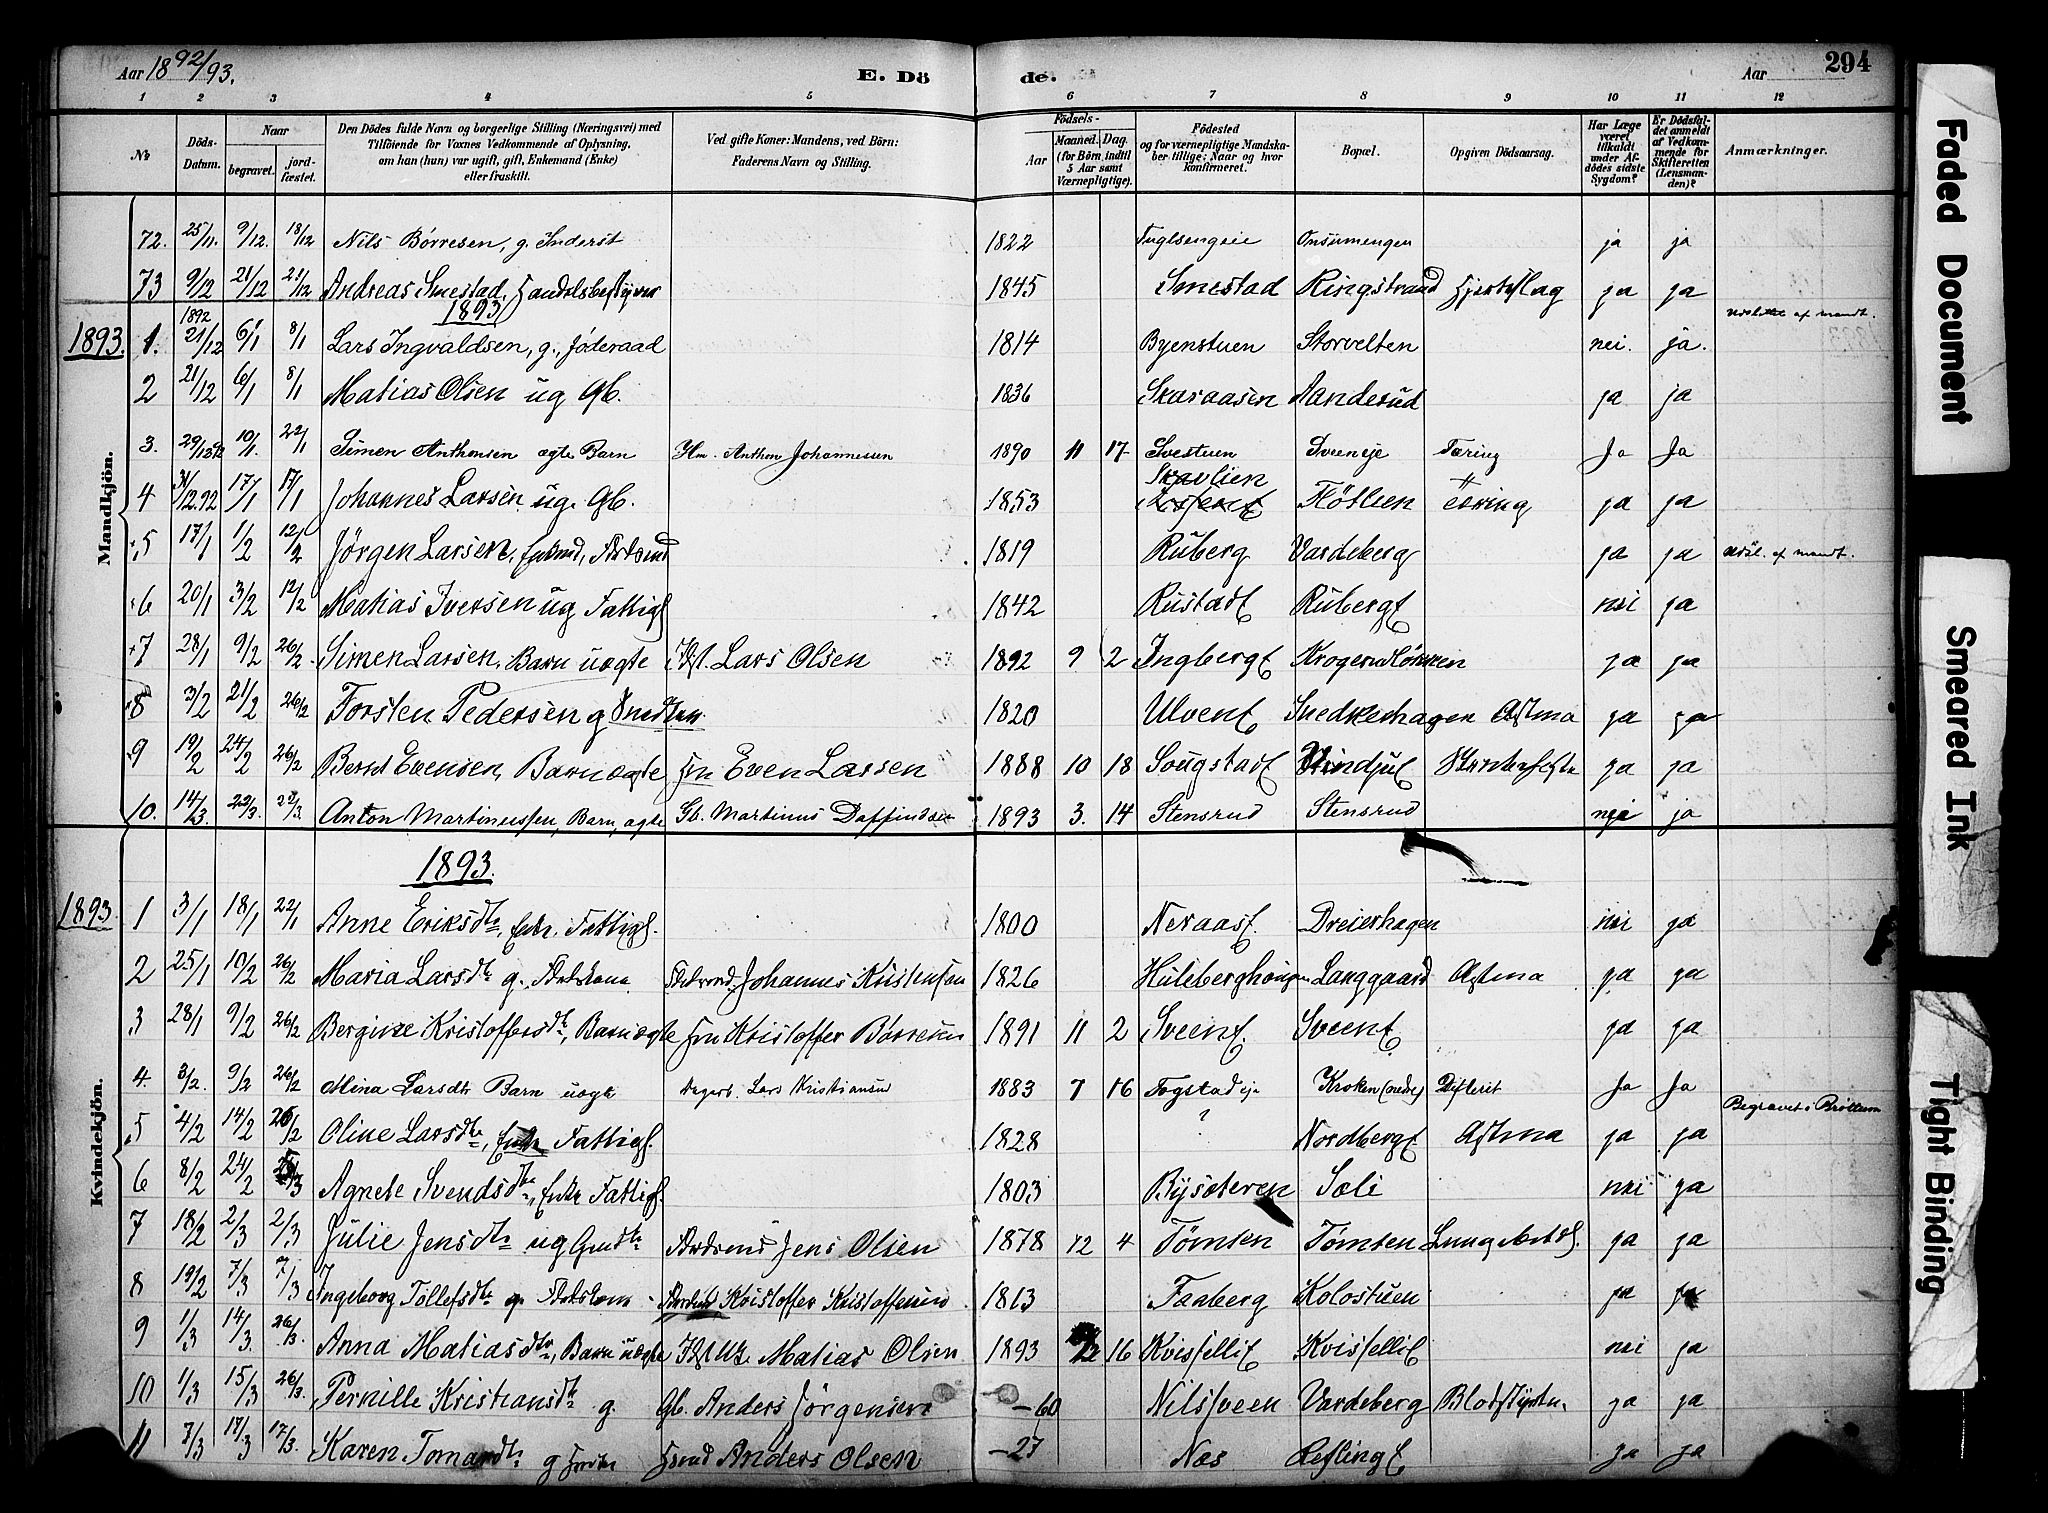 Aar 1892/93. E. Döde. Aar 294
1 2 3 4 5 6 7 8 9 10 11 12
No
Döds-Datum.
Naar begravet. jordfæstet.
Den Dödes fulde Navn og borgerlige Stilling (Næringsvei) med Tilföiende for Voxnes Vedkommende af Oplysning, om han (hun) var ugift, gift, Enkemand (Enke) eller fraskilt.
Ved gifte Koner: Mandens, ved Börn: Faderens Navn og Stilling.
Födsels-Aar Maaned. Dag. (for Börn indtil 5 Aar samt Værnepligtige).
Födested og for værnepligtige Mandskaber tillige: Naar og hvor konfirmeret.
Bopæl.
Opgiven Dödsaarsag.
Har Læge været tilkaldt under Afdödes sidste Sygdom?
Er Dödsfaldet anmeldt af Vedkommende for Skifteretten (Lensmanden)?
Anmærkninger.
72. 25/11. 9/12. 18/12 Nils Börresen, g. Inderst 1822 Fuglsengeie Onsumengen ja ja
73 9/12 21/12 21/12 Andreas Smestad, Handelsbestyrer 1845 Smestad Ringstrand Hjerteslag ja ja
1893
1893. 1. 1892 21/12 6/1 8/1 Lars Ingvaldsen, g., Föderaad 1814 Byenstuen Storvelten nei. ja.
2 21/12 6/1 8/1 Matias Olsen ug Gb. 1836 Skaraasen Aanderud ja ja
Mandkjön.
3. 29/12 92 10/1. 22/1 Simen Anthonsen ægte Barn Hm. Anthon Johannessen 1890 11 17 Svestuen Sveneje Tæring Ja Ja
4 31/12.92 17/1 17/1 Johannes Larsen ug. Gb. 1853 Skavlien Flötlien Tæring ja ja
5 17/1 1/2 12/2 Jörgen Larsen, Enkmd, 1819 Ruberg Vardeberg ja ja
6 20/1 3/2 12/2 Matias Iversen ug Fattigl 1842 Rustade Ruberge nei ja
7 28/1 9/2 26/2. Simen Larsen, Barn uægte Lars Olsen 1892 9 2 Ingberge ja ja
8 3/2 21/2 26/2 Torsten Pedersen g 1820 Ulvene Snedkerhagen Astma ja ja
9 19/2 24/2 26/2 Bernt Evensen, Barn ægte Even Larsen 1888 10 18 Sougstade ja ja
10. 14/3. 22/3. 22/3. Anton Martinussen, Barn, ægte Gb. Martinus Daffindsen 1893 3. 14 Stensrud Stensrud ja
1893.
1893. 1 3/1 18/1 22/1 Anne Eriksdtr, Enke. Fattigl. 1800 Neraase Dreierhagen nei ja
2 25/1 10/2 26/2 Maria Larsdtr g. Johannes Kristensen 1826 Langgaard Astma ja ja
3 28/1 9/2 26/2 Bergine Kristoffersdtr, Barn ægte Kristoffer Börresen 1891 11 2 Sveene Sveene ja ja
Kvindekjön.
4. 3/2. 9/2 26/2 Mina Larsdtr Barn uægte Lars Kristiansen 1883 7 16 Fogstadeje Kroken (nedre) Difterit Ja Ja
5 4/2 14/2 26/2 Oline Larsdtr, Enke Fattigl. 1828 ? Nordberge Astma ja ja Begravet i Bröttum
6 8/2 24/2 Agnete Svendsdtr, Enke Fattigl. 1803 Bysæteren Sæli nei ja
7 18/2 2/3 2/3 Julie Jensdtr ug Jens Olsen 1878 12 4 Tömsen Tömsen ja ja
8 19/2 7/3 7/3 Ingeborg Tollefsdtr g. Kristoffer Kristoffersen 1813 Faaberg Kolostuen ja ja
9 1/3 14/3. 26/3. Anna Matiasdtr, Barn uægte Matias Olsen 1893 16 Kvisfellie Kvisfellie nei ja
10 1/3 15/3 26/3. Pernille Kristiansdtr g. Gb. Anders Jörgensen -60 Nilssveen Vardeberg Blodstyrtn. ja ja
11 7/3 17/3. 17/3. Karen g Anders Olsen -27 Næs ja ja
Faded Document
Smeared Ink
Tight Binding